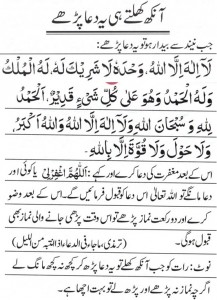 آنکھ کھلتے ہی یہ دعا پڑھے
جب نیند سے بیدار ہو تو یہ دعا پڑھے:
لَآ اِلٰهَ اِلَّا اللهُ، وَحْدَهٗ لَا شَرِيْكَ لَهٗ، لَهُ الْمُلْكُ
وَلَهُ الْحَمْدُ وَهُوَ عَلٰى كُلِّ شَیْءٍ قَدِيْرٌ، اَلْحَمْدُ
لِلّٰهِ وَ سُبْحَانَ اللهِ وَلَآ اِلٰهَ اِلَّا اللهُ وَاللهُ اَكْبَرُ،
وَلَا حَوْلَ وَلَا قُوَّةَ اِلَّا بِاللهِ.
اس کے بعد مغفرت کی دعا کرے اور کہے: اَللّٰهُمَّ اغْفِرْ لِیْ یا کوئی اور
دعا مانگے تو اللہ تعالیٰ اس کی دعا کو قبول فرمائیں گے، اس کے بعد وضو
کرے اور دو رکعت نماز پڑھے تو اس وقت پڑھی جانے والی نماز بھی
قبول ہوگی۔ (ترمذی، ماجاء فی الدعاء اذا انتبہ من اللیل)
نوٹ: رات کو جب آنکھ کھلے تو یہ دعا پڑھ کر کچھ نہ کچھ مانگ لے
اگرچہ نماز نہ پڑھے اور پڑھ لے تو بہت اچھا ہے۔